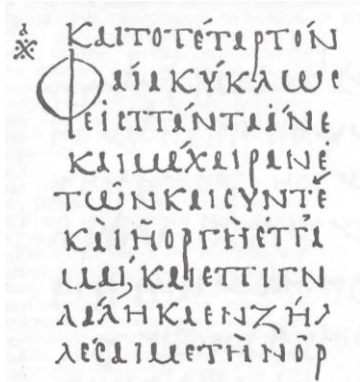 ΚΑΙΤΟΤΕΤΑΡΤΟΝ
ΦΑΙΑΚΥΚΛΩϹ
ΕΙϹΠΑΝΤΑΑΝΕ
ΚΑΙΜΑΧΑΙΡΑΝΕ
ΤΩΝΚΑΙϹΥΝΤΕ
ΚΑΙΗΟΡΓΗΕΠΑ
ΜΑΙ, ΚΑΙΕΠΙΓΝ
ΛΑΛΗΚΑΕΝΖΗΛ
ΛΕϹΑΙΜΕΤΗΝΟΡ